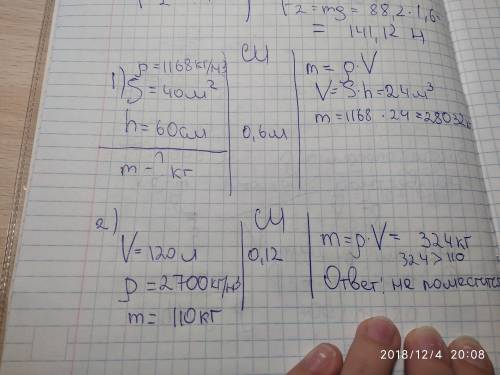 F₂ = mg = 88,2 · 1,6
= 141,12 Н
1) ρ = 1168 кг/м³
S = 40 м²
h = 60 см
m - ? кг
СИ
0,6 м
m = ρ · V
V = S · h = 24 м³
m = 1168 · 24 = 28032
2)
V = 120 л
ρ = 2700 кг/м³
m = 110 кг
СИ
0,12
m = ρ · V = 324 кг
324 > 110
Ответ: не поместится
2018/12/4 20:08